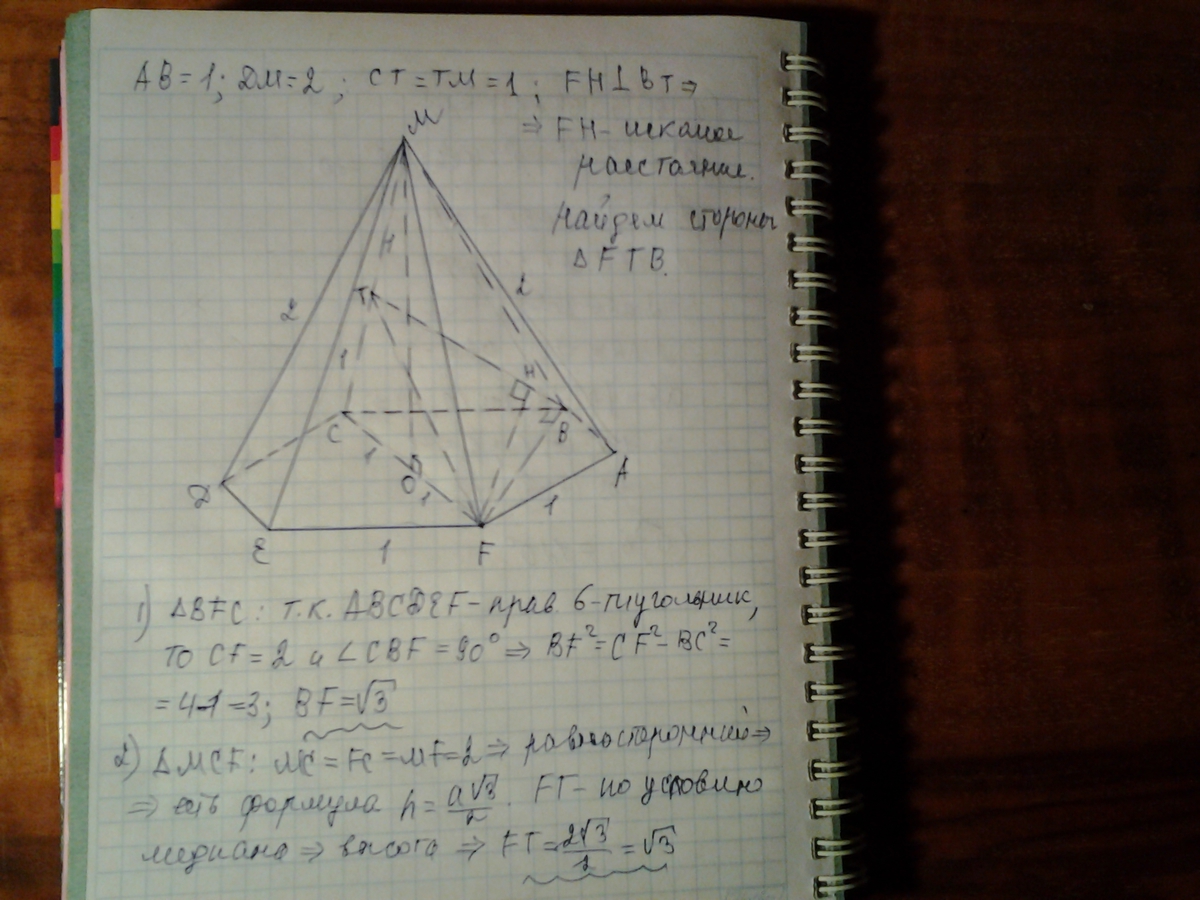 AB = 1; DM = 2; CT = TM = 1; FH ⊥ BT ⇒
⇒ FH - искомое
расстояние.
Найдем стороны
Δ FTB.
M
H
2
2
T
1
H
C
B
1
O
1
A
D
1
E
1
F
1) ΔBFC: т.к. ABCDEF - прав. 6-тиугольник,
то CF = 2 и ∠CBF = 90° ⇒ BF² = CF² - BC² =
= 4-1 = 3; BF = √3
2) ΔMCF: MC = FC = MF = 2 ⇒ равносторонний ⇒
⇒ есть формула h = a√3/2. FT - по условию
медиана ⇒ высота ⇒ FT = 2√3/2 = √3